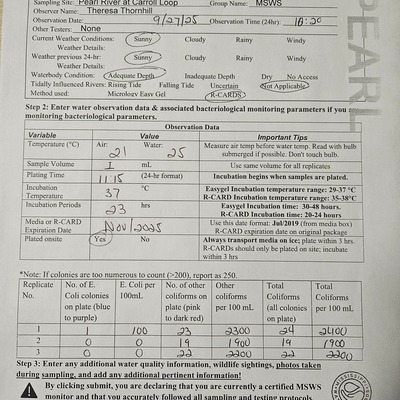 Sampling Site: Pearl River at Carroll Loop Group Name: MSWS
Observer Name: Theresa Thornhill
Observation Date: 9/27/25 Observation Time (24hr): 10:20
Other Testers: None
Current Weather Conditions: Sunny Cloudy Rainy Windy
Weather Details:
Weather previous 24-hr: Sunny Cloudy Rainy Windy
Weather Details:
Waterbody Condition: Adequate Depth Inadequate Depth Dry No Access
Tidally Influenced Rivers: Rising Tide Falling Tide Uncertain Not Applicable
Method used: Micrology Easy Gel R-CARDS
PEARL
Step 2: Enter water observation data & associated bacteriological monitoring parameters if you
monitoring bacteriological parameters.
Observation Data
Variable Value Important Tips
Temperature (°C) Air: 21 Water: 25 Measure air temp before water temp. Read with bulb submerged if possible. Don't touch bulb.
Sample Volume 1 mL Use same volume for all replicates
Plating Time 11:15 (24-hr format) Incubation begins when samples are plated.
Incubation Temperature 37 °C Easygel Incubation temperature range: 29-37 °C R-CARD Incubation temperature range: 35-38°C
Incubation Periods 23 hrs Easygel Incubation time: 30-48 hours. R-CARD Incubation time: 20-24 hours
Media or R-CARD Expiration Date Nov/2025 Use this date format: Jul/2019 (from media box) R-CARD expiration date on original package
Plated onsite Yes No Always transport media on ice; plate within 3 hrs. R-CARDs should only be plated on site; incubate within 3 hrs
*Note: If colonies are too numerous to count (>200), report as 250.
Replicate No. No. of E. Coli colonies on plate (blue to purple) E. Coli per 100mL No. of other coliforms on plate (pink to dark red) Other coliforms per 100 mL Total Coliforms (all colonies on plate) Total Coliforms per 100 mL
1 1 100 23 2300 24 2400
2 0 0 19 1900 19 1900
3 0 0 22 2200 22 2200
Step 3: Enter any additional water quality information, wildlife sightings, photos taken
during sampling, and add any additional pertinent information!
By clicking submit, you are declaring that you are currently a certified MSWS
monitor and that you accurately followed all sampling and testing protocols.